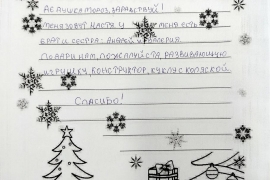 ДЕДУШКА МОРОЗ, ЗДРАВСТВУЙ!
МЕНЯ ЗОВУТ НАСТЯ, У МЕНЯ ЕСТЬ
БРАТ И СЕСТРА: АНДРЕЙ И ВАЛЕРИЯ.
ПОДАРИ НАМ, ПОЖАЛУЙСТА, РАЗВИВАЮЩУЮ
ИГРУШКУ, КОНСТРУКТОР, КУКЛУ С КОЛЯСКОЙ.
СПАСИБО!